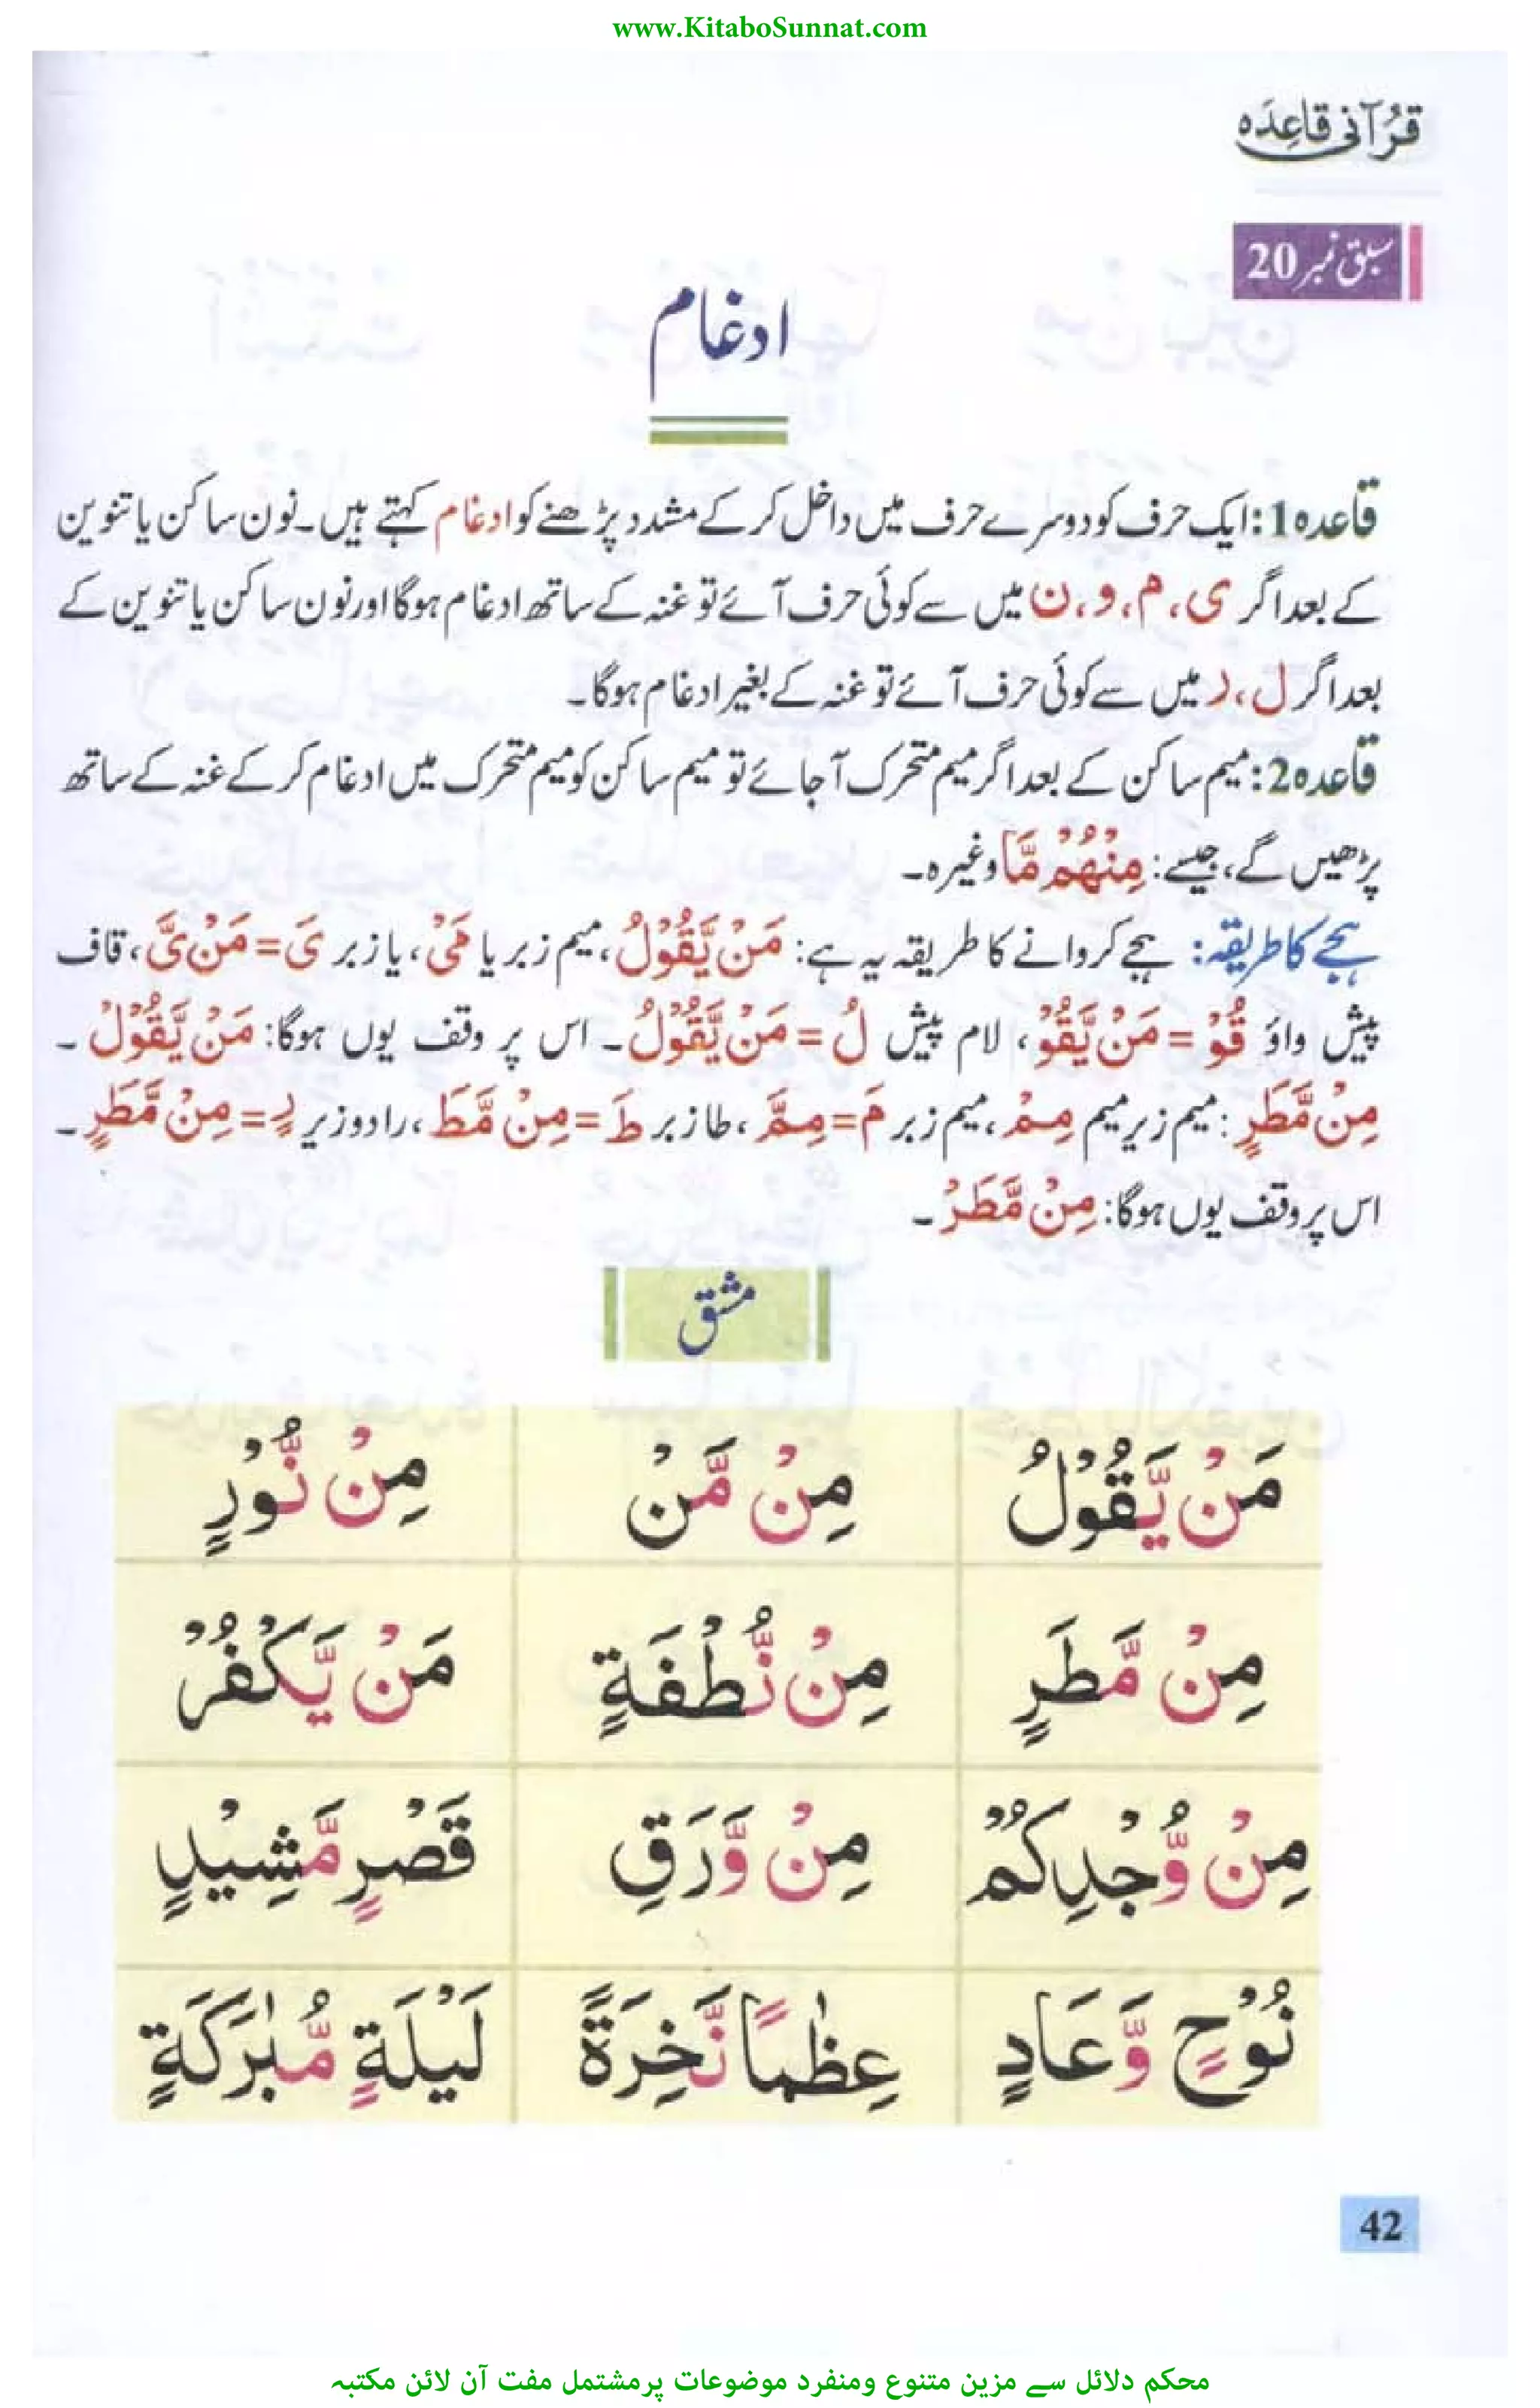 www.KitaboSunnat.com
قرآنی قاعدہ
سبق نمبر 20
ادغام
قاعدہ 1: ایک حرف کو دوسرے حرف میں داخل کر کے مشدد پڑھنے کو ادغام کہتے ہیں۔ نون ساکن یا تنوین
کے بعد اگر ی، م، و، ن میں سے کوئی حرف آئے تو غنہ کے ساتھ ادغام ہوگا اور نون ساکن یا تنوین کے
بعد اگر ل، ر میں سے کوئی حرف آئے تو غنہ کے بغیر ادغام ہوگا۔
قاعدہ 2: میم ساکن کے بعد اگر میم متحرک آ جائے تو میم ساکن کو میم متحرک میں ادغام کر کے غنہ کے ساتھ
پڑھیں گے، جیسے: مِنْهُمْ مَّا وغیرہ۔
ہجے کا طریقہ: ہجے کروانے کا طریقہ یہ ہے: مَنْ يَّقُوْلُ، میم زبر یا مَیْ، یا زبر یَ = مَنْ یَّ، قاف
پیش واؤ قُوْ = مَنْ يَّقُوْ، لام پیش لُ = مَنْ يَّقُوْلُ۔ اس پر وقف یوں ہوگا: مَنْ يَّقُوْلْ۔
مِنْ مَّطَرٍ: میم زیر میم مِمْ، میم زبر مَ = مِمَّ، طا زبر طَ = مِنْ مَّطَ، را دو زیر رٍ = مِنْ مَّطَرٍ۔
اس پر وقف یوں ہوگا: مِنْ مَّطَرْ۔
مشق
مَنْ يَّقُوْلُ مِنْ مَّنْ مِنْ نُّوْرٍ
مِنْ مَّطَرٍ مِنْ نُّطْفَةٍ مَنْ يَّكْفُرْ
مِنْ وُّجْدِكُمْ مِنْ وَّرَقِ قَصْرٍ مَّشِيْدٍ
نُوْحٍ وَّعَادٍ عِظٰمًا نَّخِرَةً لَيْلَةٍ مُّبٰرَكَةٍ
42
محکم دلائل سے مزین متنوع ومنفرد موضوعات پر مشتمل مفت آن لائن مکتبہ